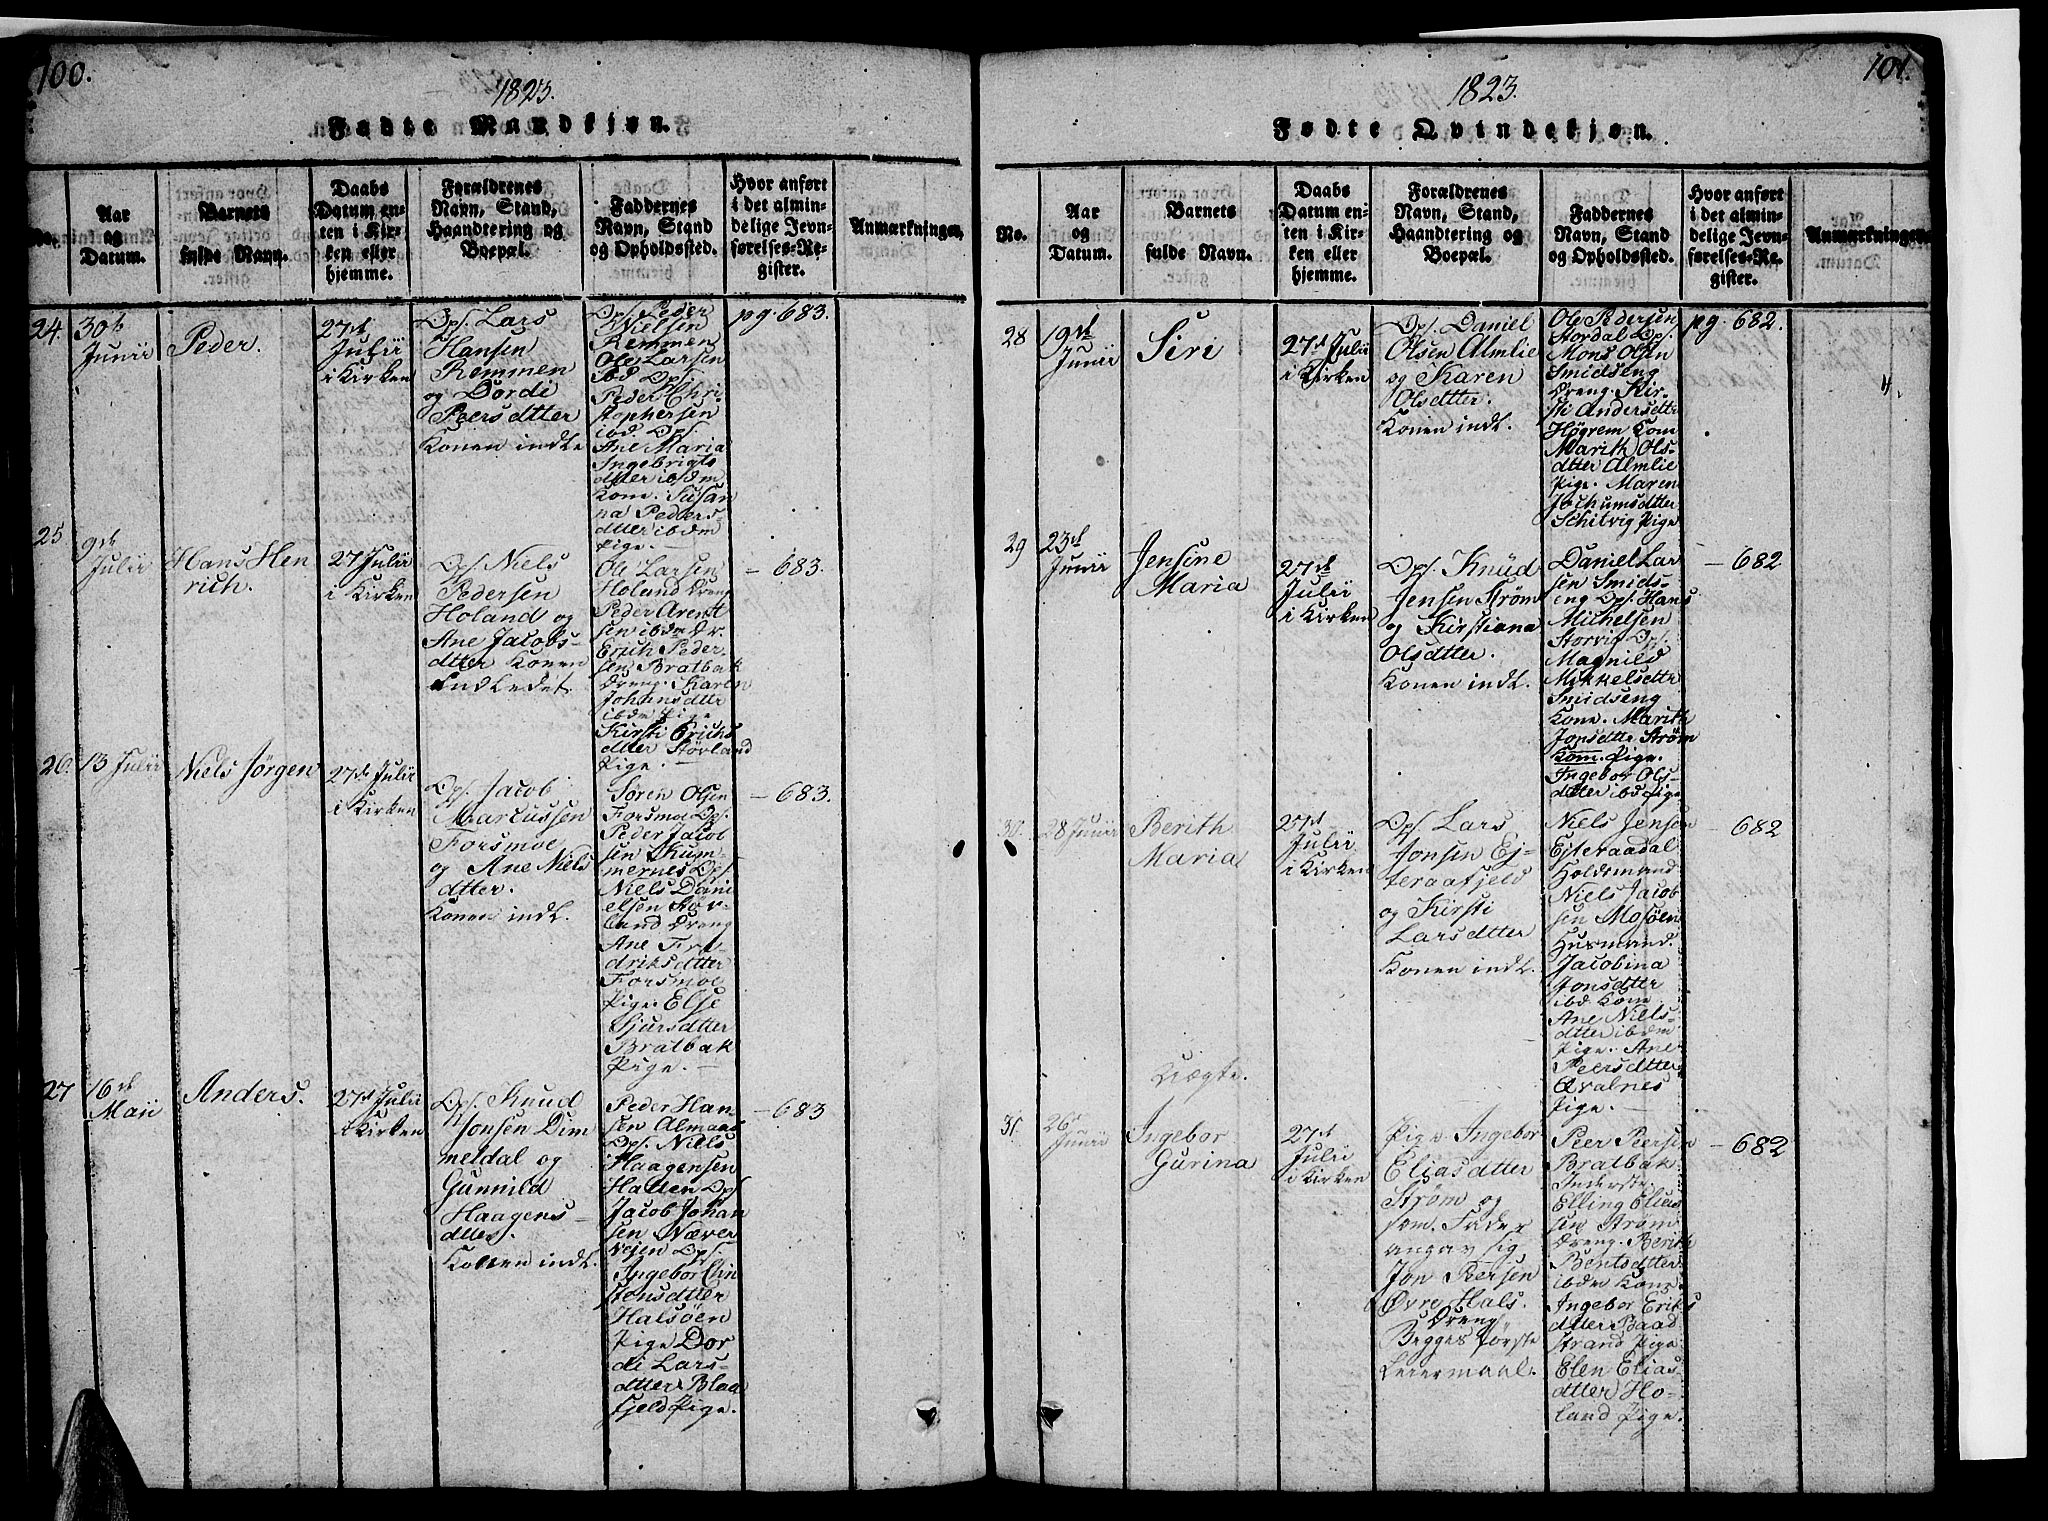 100.
1823.
Fødte Mandkjøn.
No.
Aar
og
Datum.
Barnets
fulde Navn.
Daabs
Datum en-
ten i Kir-
ken eller
hjemme.
Forældrenes
Navn, Stand,
Haandtering og
Boepæl.
Faddernes
Navn, Stand
og Opholdssted.
Hvor anført
i det almin-
delige Jevn-
førelses-Re-
gister.
Anmærkninger.
24.
30te
Junii
Peder.
27de
Julii
i Kirken
Ops. Lars
Hansen
Remmen
og Dordi
Peersdtter
Konen indl.
Ops. Peder
Nielsen
Remmen
Ole Larsen
ibd Ops.
Peder Chri-
stophersen
ibd. Ops.
Ane Maria
Ingebrigts
dtter ibdm
Kone. Susan
na Peders-
dtter ibdm
Pige.
pg. 683.
25.
9de
Julii
Hans Hen
rich.
27 Julii
i Kirken
Ops. Niels
Pedersen
Holand og
Ane Jacobs-
dtter Konen
indledet.
Ole Larsen
Holand Dreng
Peder Arent
sen ibdm Dr.
Erich Peder-
sen Bratbak
Dreng. Karen
Johansdtter
ibdm Pige
Kirsti Erichs
dtter Storland
Pige.
— 683.
26.
13 Julii
Niels Jørgen
27de Julii
i Kirken
Ops. Jacob
Marcussen
Forsmoe
og Ane Niels
dtter.
Konen indl.
Søren Olsen
Forsmoe Ops.
Peder Jacob
sen Kum-
mernes Ops.
Niels Dani
elsen Stor-
land Dreng
Ane Fre-
driksdtter
Forsmoe
Pige. Else
Sjursdtter
Bratbak
Pige. —
— 683.
27
16de
Maii
Anders.
27de Julii
i Kirken
Ops. Knud
Jonsen Dim
meldal og
Gunnild
Haagens-
dtter.
Konen indl.
Peder Han-
sen Almaas
Ops. Niels
Haagensen
Halsen Ops.
Jacob Johan
sen Næver
vejen Ops.
Ingebor Chri
stensdtter
Halsøen
Pige Dor
di Lars-
dtter Blaa
fjeld Pige.
— 683
101.
1823.
Fødte Qvindekjøn.
No.
Aar
og
Datum.
Barnets
fulde Navn.
Daabs
Datum en-
ten i Kir-
ken eller
hjemme.
Forældrenes
Navn, Stand,
Haandtering og
Boepæl.
Faddernes
Navn, Stand
og Opholdssted.
Hvor anført
i det almin-
delige Jevn-
førelses-Re-
gister.
Anmærkninger.
28
19de
Junii
Siri
27de Julii
i Kirken
Ops. Daniel
Olsen Almlie
og Karen
Olsdtter.
Konen indl.
Ole Pedersen
Stordal Ops.
Mons Olsen
Smidseng
Dreng. Kir-
sti Andersdttr
Högrem Kone
Marith Ols-
dtter Almlie
Pige. Maren
Jochumsdtter
Schilvig Pige
pg. 682.
29
23de
Junii
Jensine
Maria
27de
Julii
i Kirken
Ops. Knud
Jensen Strøm
og Kirstiana
Olsdtter.
Konen indl.
Daniel Lar
sen Smids-
eng Ops. Hans
Michelsen
Storvig Ops.
Magnild
Mikkelsdttr
Smidseng
Kone. Marith
Jonsdttr Strøm
Kom. Pige.
Ingebor Ols-
dtter ibd Pige
— 682
30.
28 Junii
Berith
Maria
27de
Julii
i Kirken
Ops. Lars
Jonsen Ej-
teraafjeld
og Kirsti
Larsdtter
Konen indl.
Niels Jensen
Ejteraadal
Holdsmand
Niels Jacob
sen Mosøen
Husmand.
Jacobina
Jonsdtter
ibd Kone
Ane Niels-
dtter ibdm
Pige. Ane
Peersdtter
Qvalnes
Pige. —
— 682
Uægte.
31.
26de
Junii
Ingebor
Gurina
27de
Julii
i Kirken
Pige Ingebor
Eliasdtter
Strøm og
som Fader
angav sig
Jon Peersen
Øvre Hals.
Dreng
Begges første
Leiermaal.
Peer Peersen
Bratbak
Inderste.
Elling Elias
sen Strøm
Dreng. Berith
Bentsdtter
ibdm Kone
Ingebor Eriks
dtter Baad
strand Pige
Elen Elias
dtter Ho-
land Pige.
— 682